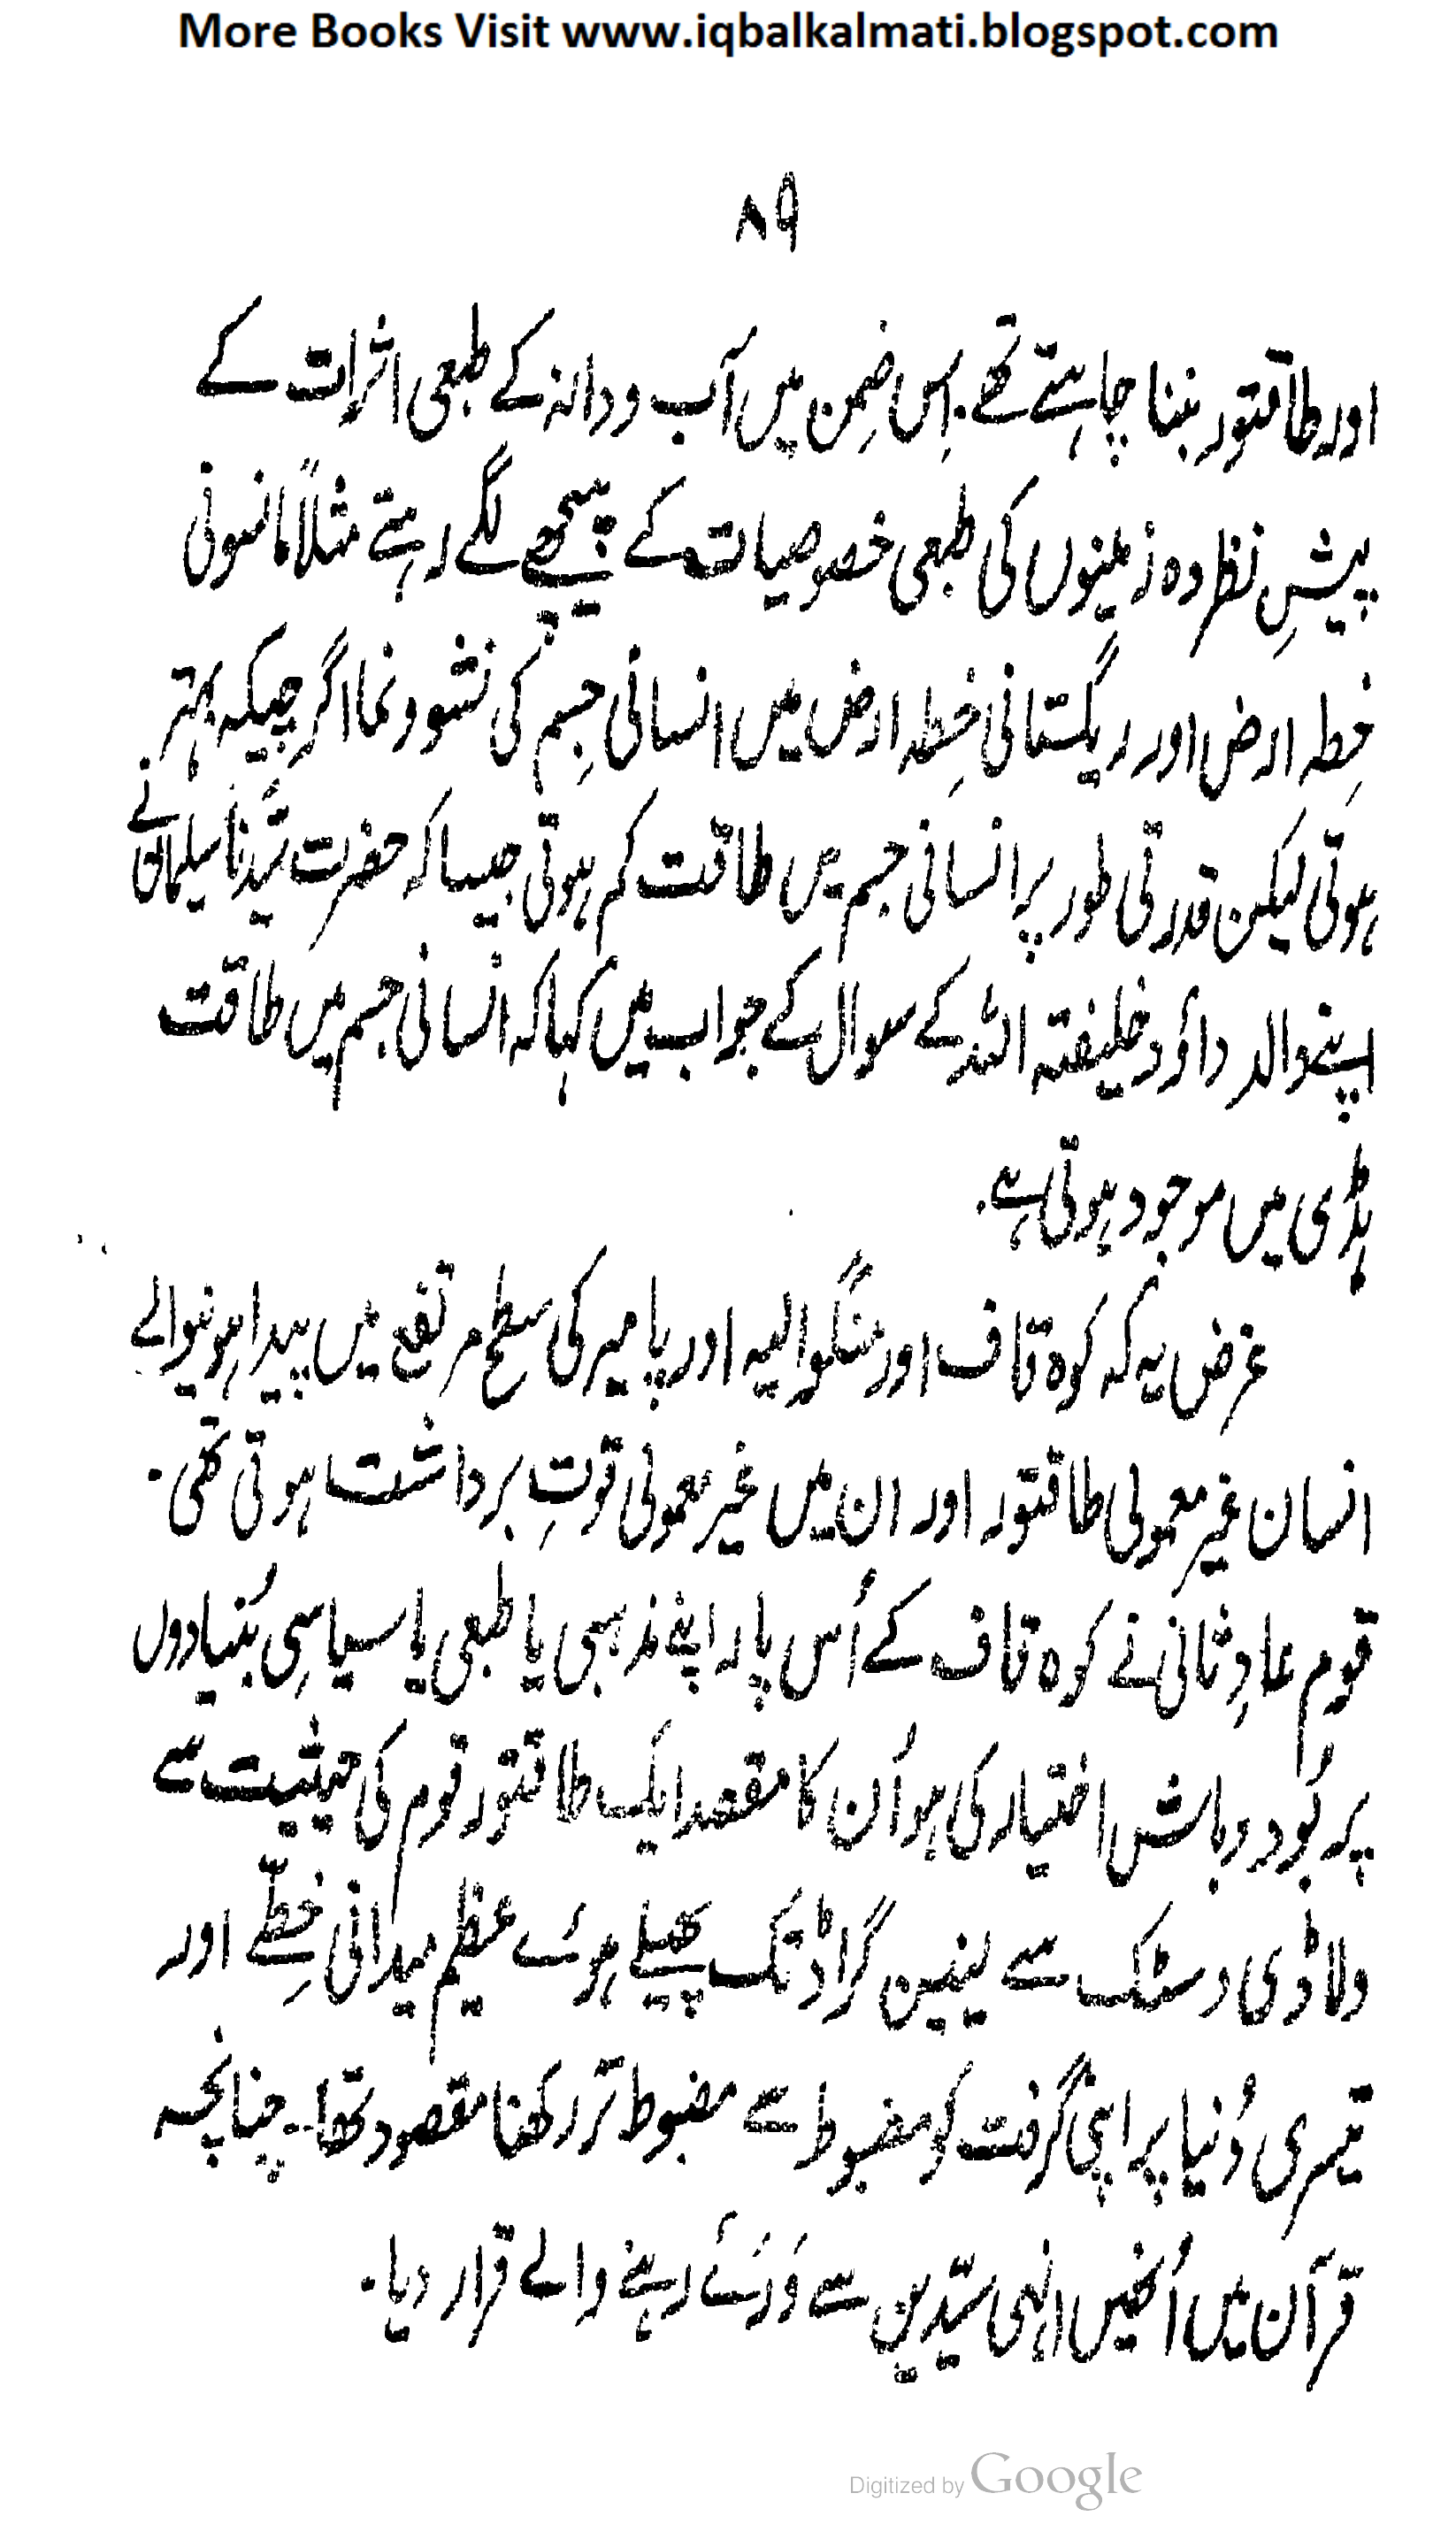 More Books Visit www.iqbalkalmati.blogspot.com
۸۹
اور طاقتور بننا چاہتے تھے. اِس ضِمن میں آب و دانہ کے طبعی اثرات کے
پیشِ نظر وہ زمینوں کی طبعی خصوصیات کے پیچھے لگے رہتے مثلاً مانسونی
خِطہ ارض اور ریگستانی خِطہ ارض میں انسانی جِسم کی نشو و نما اگرچیکہ بہتر
ہوتی لیکن قدرتی طور پر انسانی جسم میں طاقت کم ہوتی جیسا کہ حضرت سیّدنا سیلمان نے
اپنے والد داؤد خلیفتہ اللہ کے سوال کے جواب میں کہا کہ انسانی جسم میں طاقت
ہڈی میں موجود ہوتی ہے.
غرض یہ کہ کوہ قاف اور منگولیہ اور پامیر کی سطح مرتفع میں پیدا ہونیوالے
انسان غیر معمولی طاقتور اور ان میں غیر معمولی قوتِ برداشت ہوتی تھی.
قوم عادِ ثانی نے کوہ قاف کے اُس پار اپنے مذہبی یا طبعی یا سیاسِی بُنیادوں
پر بُود و باش اختیار کی ہو اُن کا مقصد ایک طاقتور قوم کی حیثیت سے
ولاڈی وسٹک سے لینین گراڈ تک پھیلے ہوئے عظیم میدانی خِطّے اور
تیسری دُنیا پر اپنی گرفت کو مضبوط سے مضبوط تر رکھنا مقصود تھا-- چنانچہ
قرآن میں اُنھیں انہی سدّین سے وَرَئے رہنے والے قرار دیا.
Digitized by Google